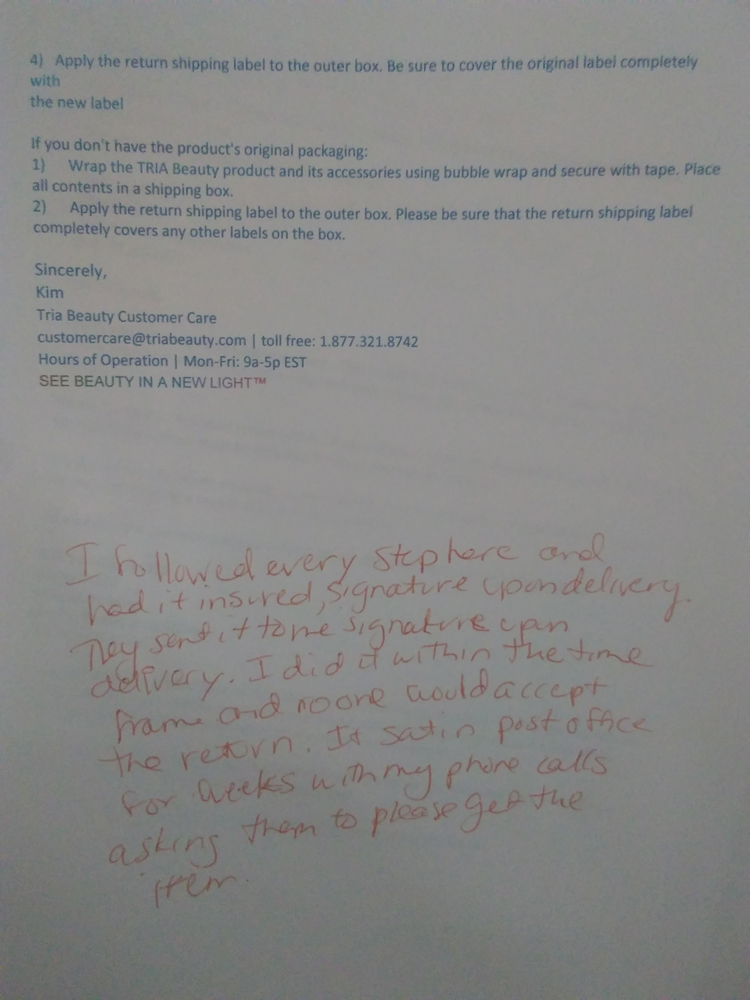 4) Apply the return shipping label to the outer box. Be sure to cover the original label completely
with
the new label
If you don't have the product's original packaging:
1) Wrap the TRIA Beauty product and its accessories using bubble wrap and secure with tape. Place
all contents in a shipping box.
2) Apply the return shipping label to the outer box. Please be sure that the return shipping label
completely covers any other labels on the box.
Sincerely,
Kim
Tria Beauty Customer Care
customercare@triabeauty.com | toll free: 1.877.321.8742
Hours of Operation | Mon-Fri: 9a-5p EST
SEE BEAUTY IN A NEW LIGHT™
I followed every step here and
had it insured, signature upon delivery.
They send it to me signature upan
delivery. I did it within the time
frame and no one would accept
the return. It sat in post office
for weeks with my phone calls
asking them to please get the
item.